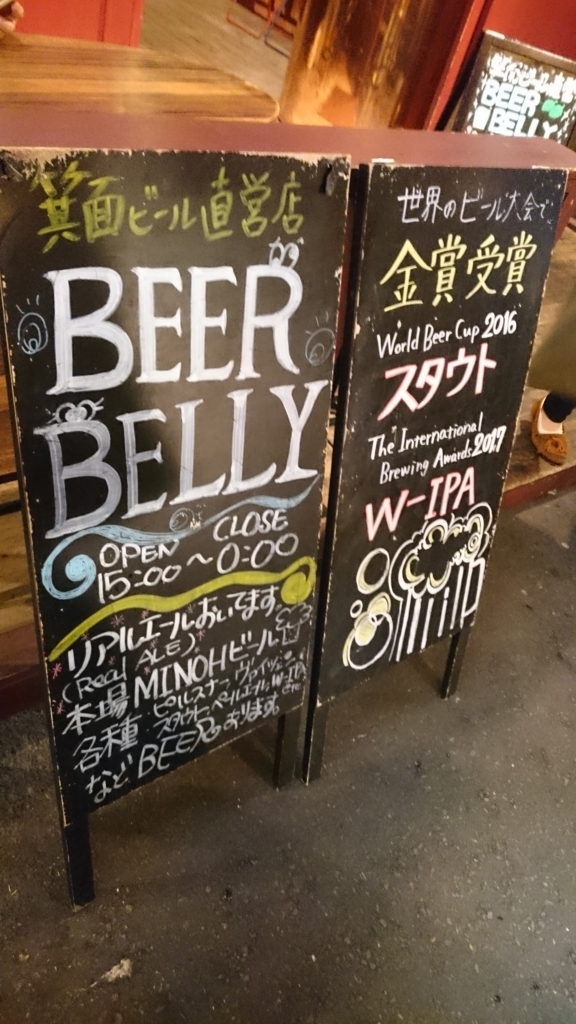 箕面ビール直営店
BEER
BELLY
OPEN CLOSE
15:00~0:00
リアルエールおいてます
(Real ALE)
本場MINOHビール
各種 ピルスナー ヴァイツェン
スタウト ペールエール W-IPA etc
などBEERあります
世界のビール大会で
金賞受賞
World Beer Cup 2016
スタウト
The International
Brewing Awards 2017
W-IPA
BEER
BELLY